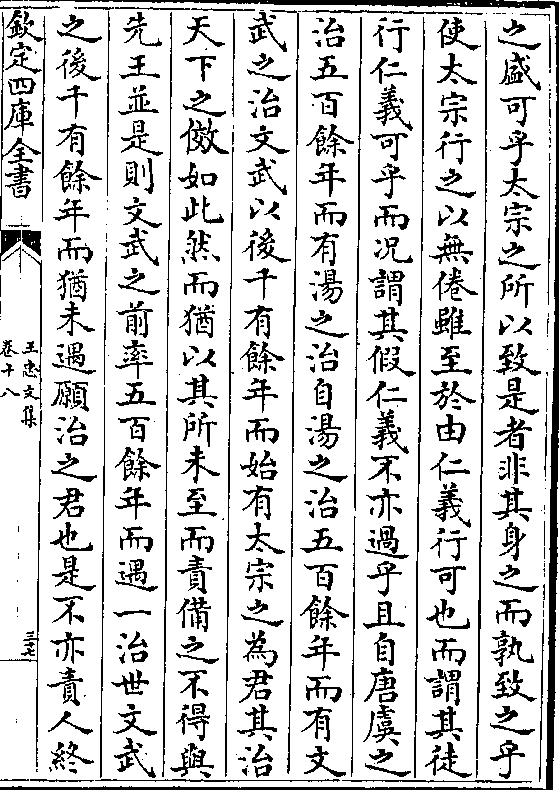 之盛可乎太宗之所以致是者非其身之而孰致之乎
使太宗行之以無倦雖至於由仁義行可也而謂其徒
行仁義可乎而况謂其假仁義不亦過乎且自唐虞之
治五百餘年而有湯之治自湯之治五百餘年而有文
武之治文武以後千有餘年而始有太宗之為君其治
天下之傚如此然而猶以其所未至而責備之不得與
先王並是則文武之前率五百餘年而遇一治世文武
之後千有餘年而猶未遇願治之君也是不亦責人終
欽定四庫全書
王忠文集
卷十八
三七